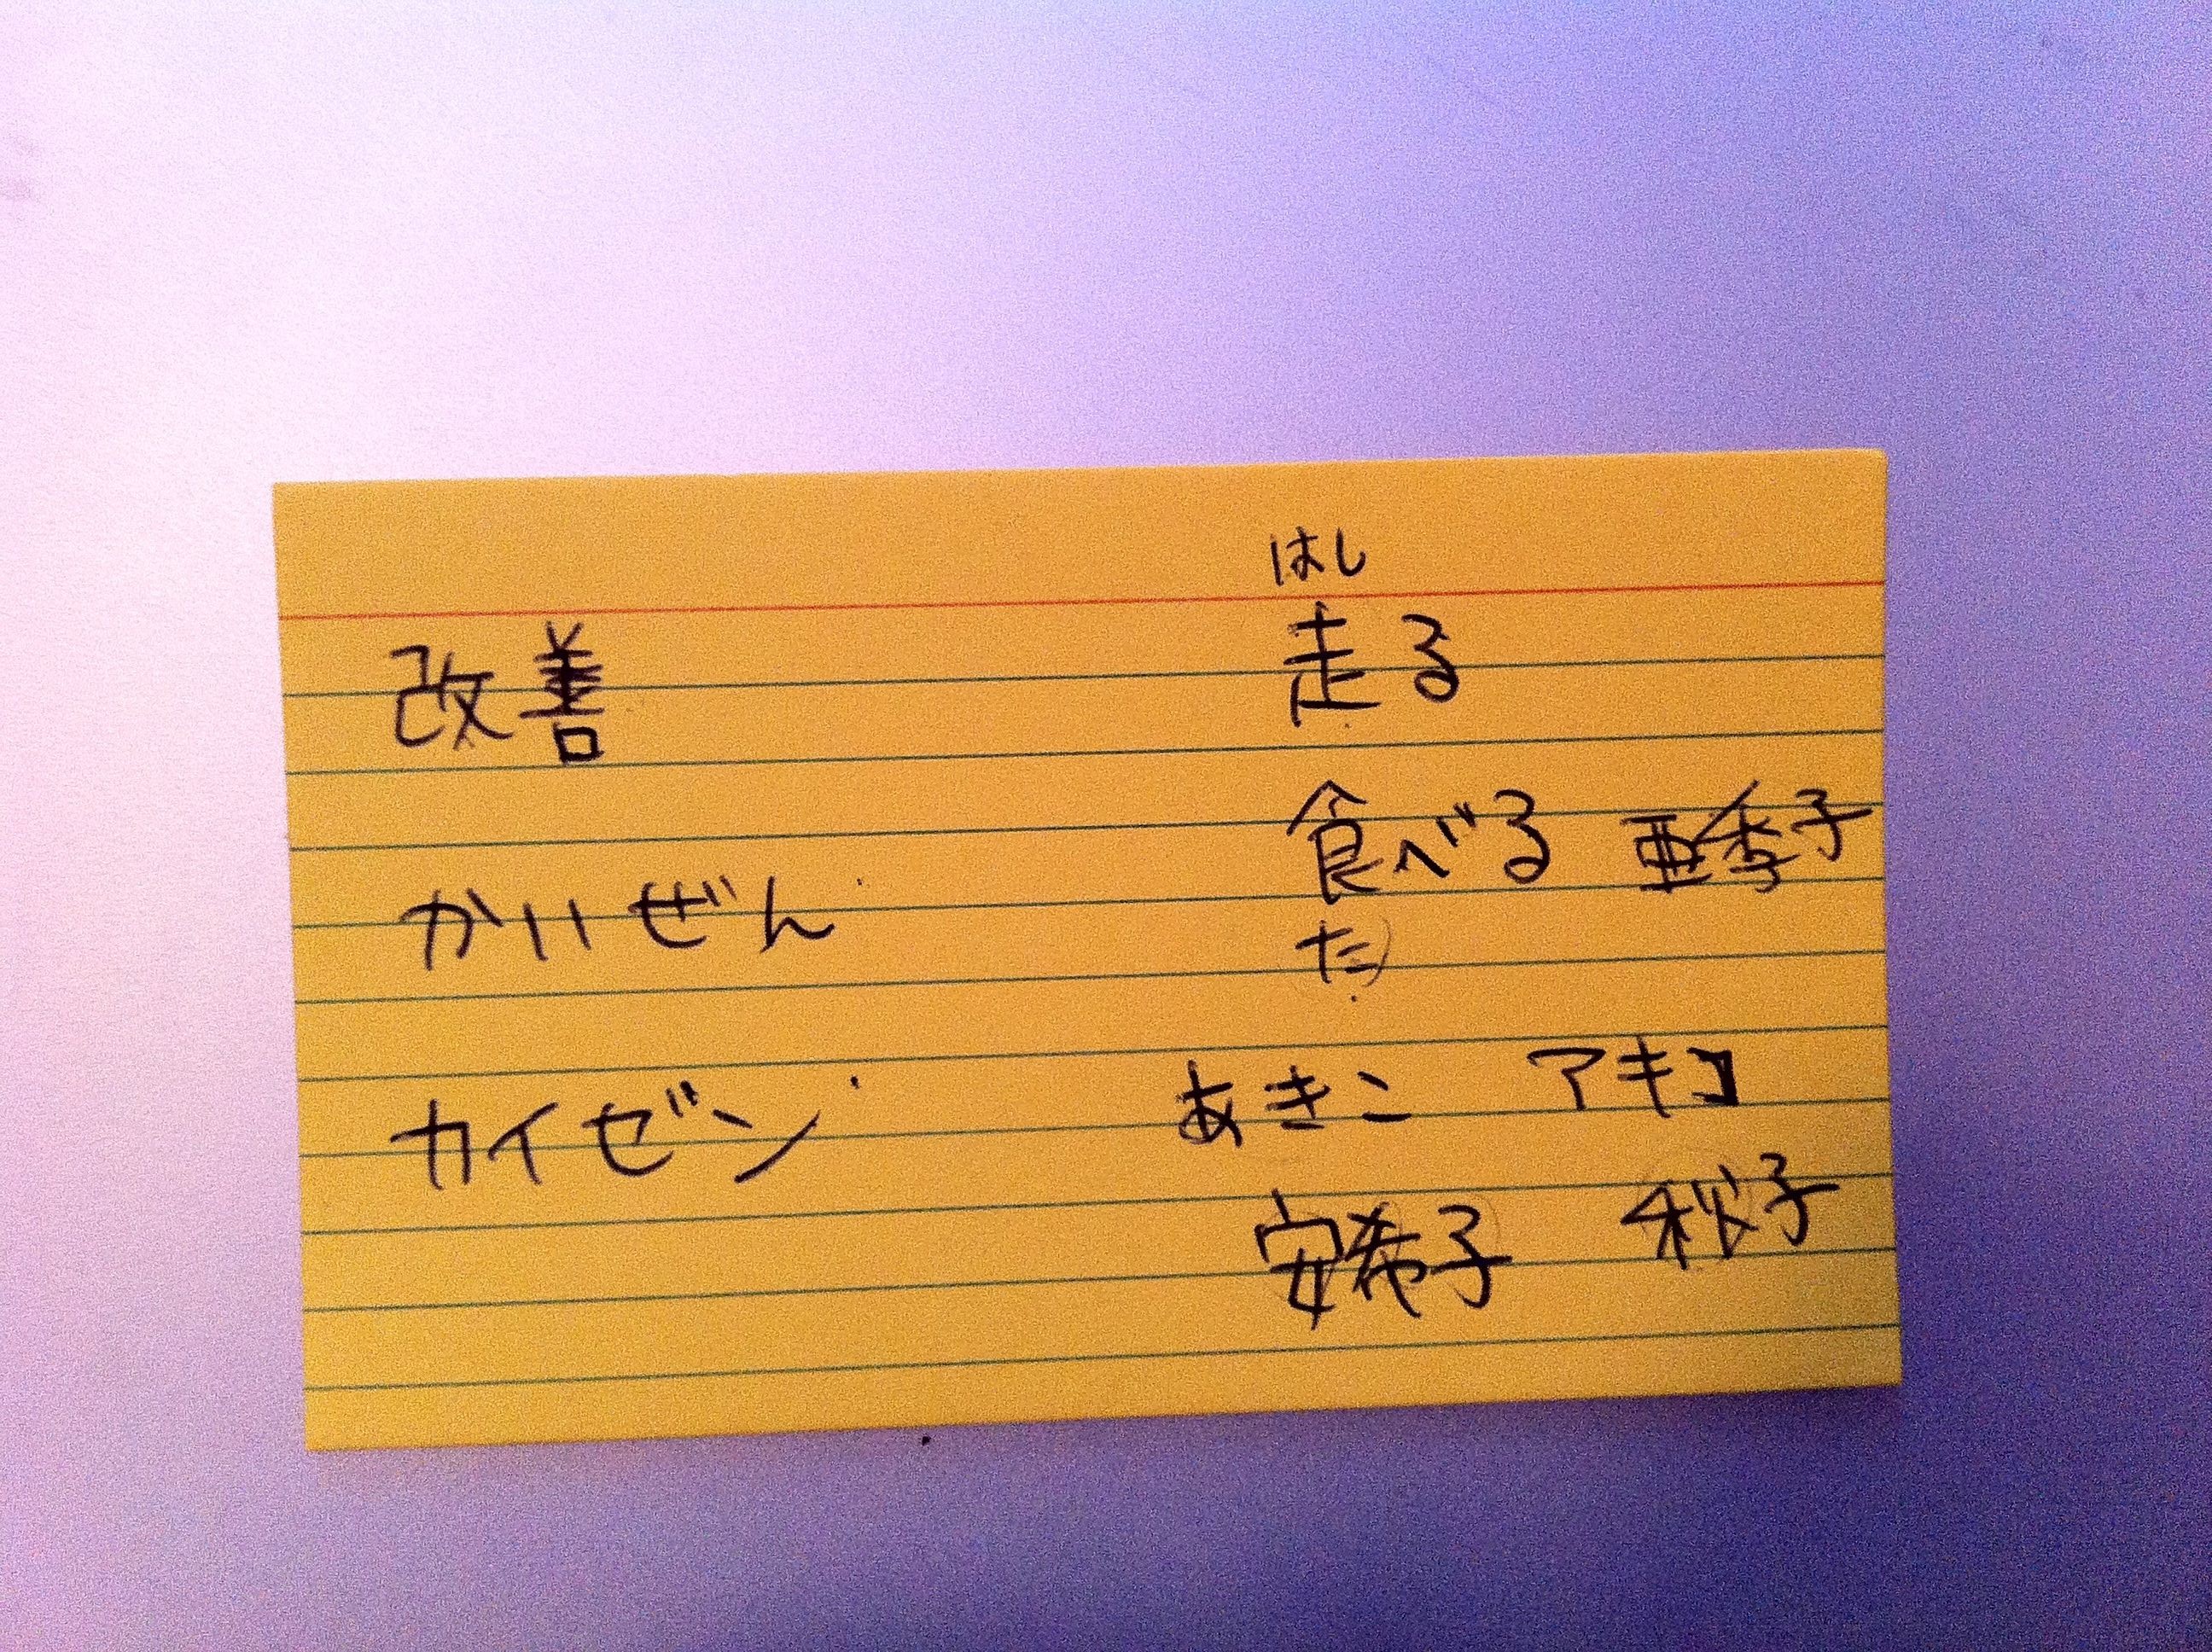 改善
かいぜん
カイゼン
はし
走る
食べる 亜季子
た
あきこ アキコ
安希子 秋子